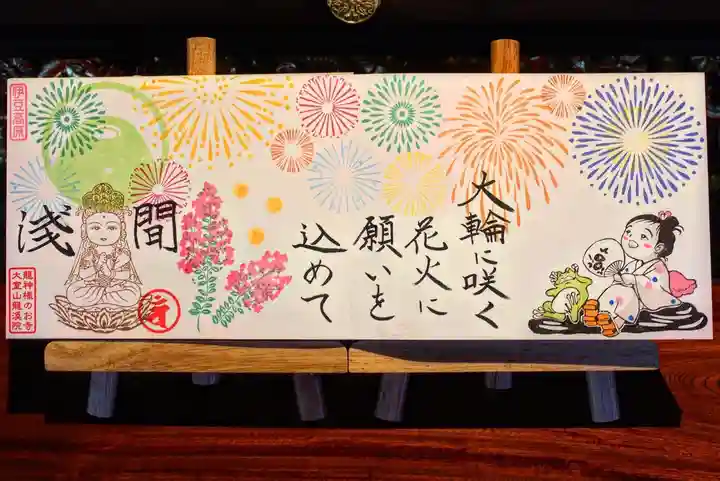 大輪に咲く
花火に
願いを
込めて
浅間
伊豆高原
龍神様のお寺
大室山龍渓院